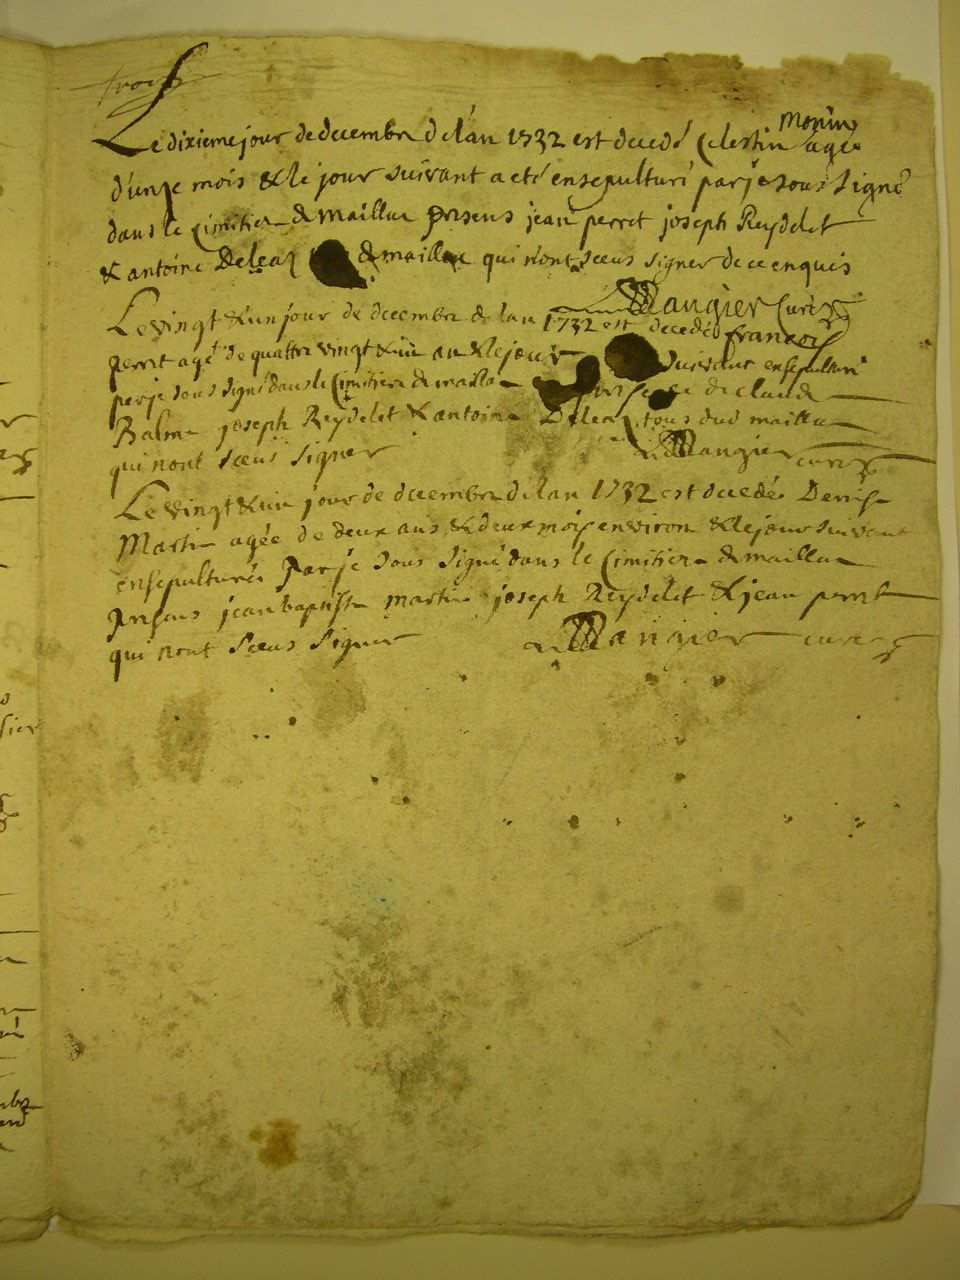 trois
Le dixieme jour de decembre de lan 1732 est decedé Celestin Monin agée
d'unze mois & le jour suivant a eté ensepulturé par je sous signé
dans le Cimitier de maillae presens jean perret joseph Reydelet
& antoine Deleaz de maillae qui n'ont sceus signer de ce enquis
Mangier Curez
Le vingt & un jour de decembre de lan 1732 est decedéé francois
perrit agé de quattre vingt & un an & le jour suivant ensepulturé
par je sous signé dans le Cimitier de maillae de claude
Balme joseph Reydelet & antoine Deleaz tous dud maillae
qui nont sceus signer
Mangier curez
Le vingt & un jour de decembre de lan 1732 est decedée Denise
Martin agée de deux ans & deux mois environ & le jour suivant
ensepulturée par je sous signé dans le Cimitier de maillae
presens jean baptiste martin joseph Reydelet & jean perret
qui nont sceus signer
Mangier curez